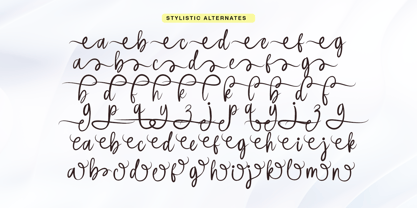 STYLISTIC ALTERNATES
ea eb ec ed ee ef eg
a b c d e f g
b d f h k l b d f
g p q y z j p q y j z g
ea eb ec ed ee ef eg eh ei ej ek
a b c d e f g h i j k l m n